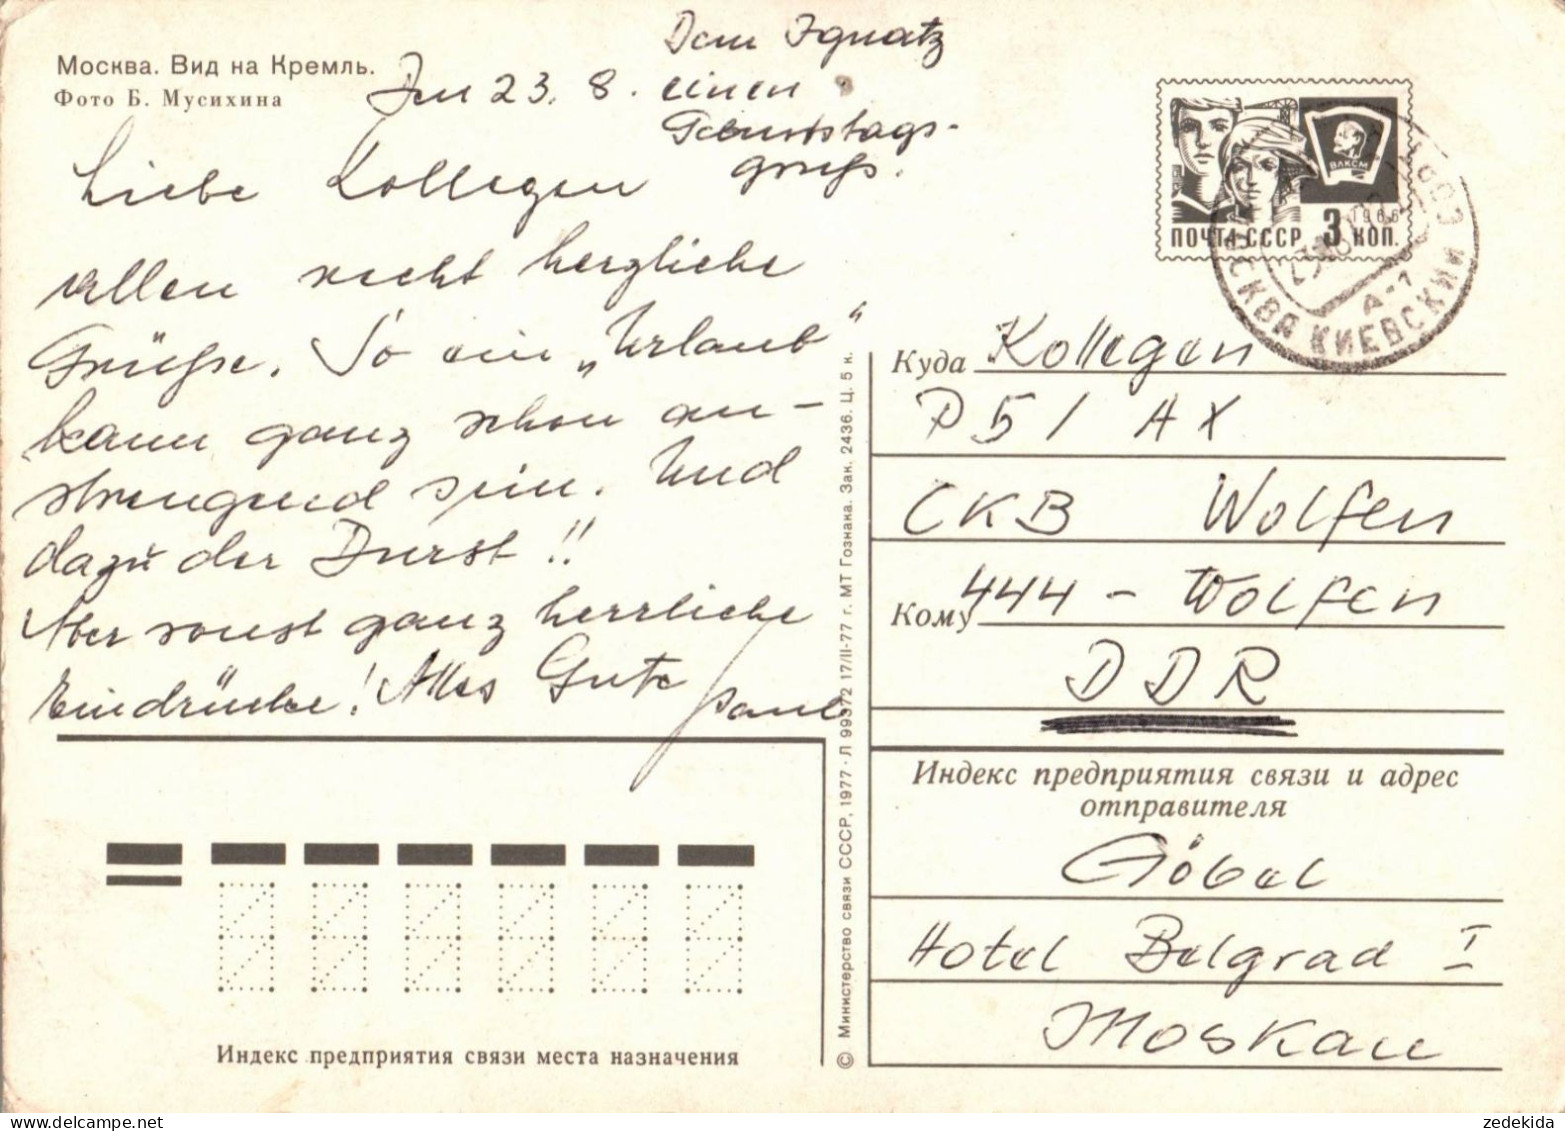 Москва. Вид на Кремль.
Фото Б. Мусихина
Dem Ignatz
einen
Geburtstags-
gruß.
23. 8.
Liebe Kollegen
allen recht herzliche
Grüße. So ein „Urlaub"
kann ganz schön an-
strengend sein. Und
dazu der Durst!!
Aber sonst ganz herrliche
Eindrücke! Alles Gute
Индекс предприятия связи места назначения
© Министерство связи СССР, 1977 · Л 99372 17/II-77 г. МТ Гознака. Зак. 2436. Ц. 5 к.
ВЛКСМ
1966
ПОЧТА СССР 3 КОП.
МОСКВА КИЕВСКИЙ
А-1
Куда Kollegen
P51 AX
CKB Wolfen
Кому 444 - Wolfen
DDR
Индекс предприятия связи и адрес
отправителя
Göbel
Hotel Belgrad I
Moskau
zedekida